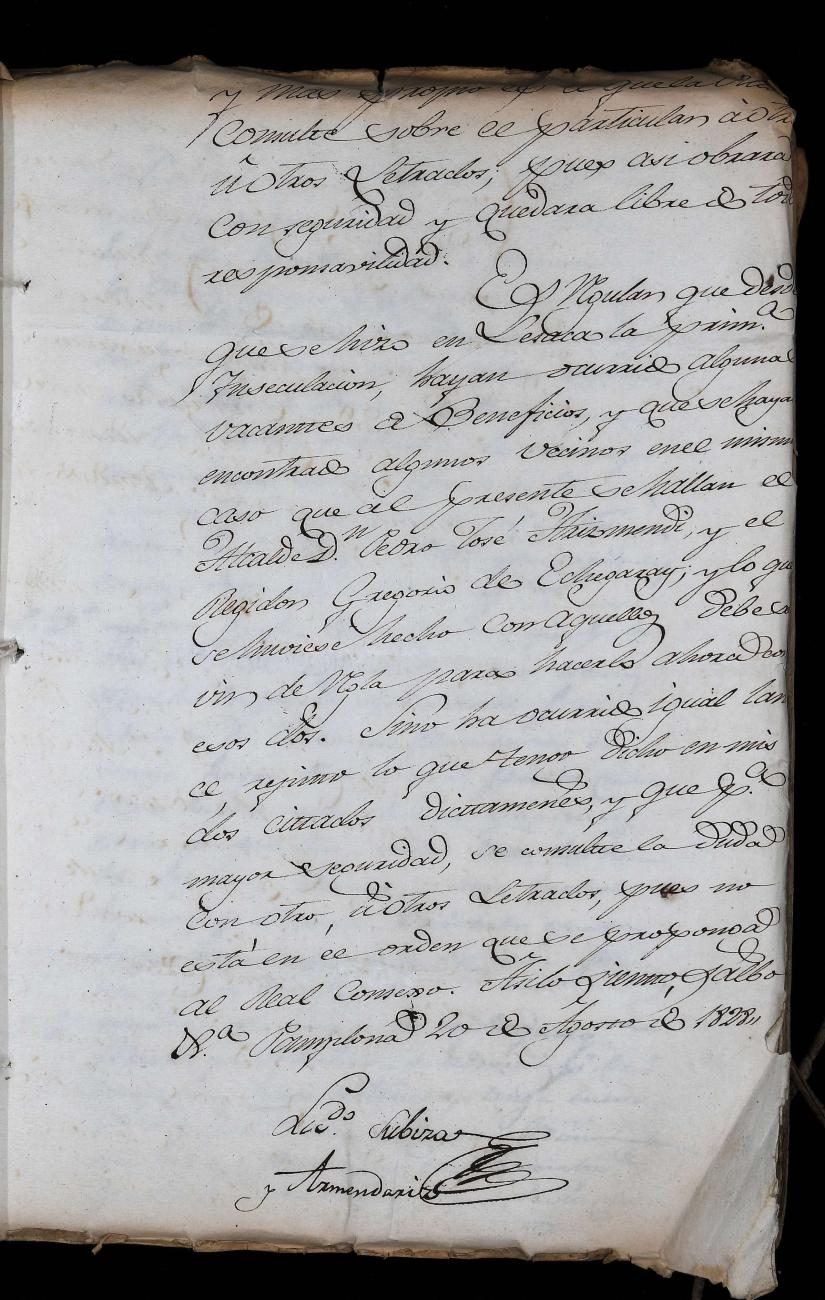 y mas propio es el que la
Consulte sobre el particular à otr
ũ Otros Letrados; pues asi obrara
Con seguridad y quedara libre de tod
responsavilidad.
Es Rgular que desde
que se hizo en Lesaca la prim.ª
Inseculacion, hayan ocurrido algunas
vacantes de Beneficios, y que se haya
encontrado algunos vecinos en el mismo
caso que al presente se hallan el
Alcalde D.n Pedro José Arizmendi, y el
Regidor Gregorio de Echegaray; y lo que
se huviese hecho con aquellos debe se
vir de Rgla para hacerlo ahora con
esos dos. Sino ha ocurrido igual lan
ce, repito lo que tengo dicho en mis
dos cittados dicttamenes, y que p.ª
mayor seguridad, se comulte la Duda
Con otro, ũ otros Letrados, pues no
està en el orden que se proponga
al Real Consexo. Asi lo siento, salbo
Pamplona 20 de Agosto de 1828,,
Lic.do Subiza
y Armendariz